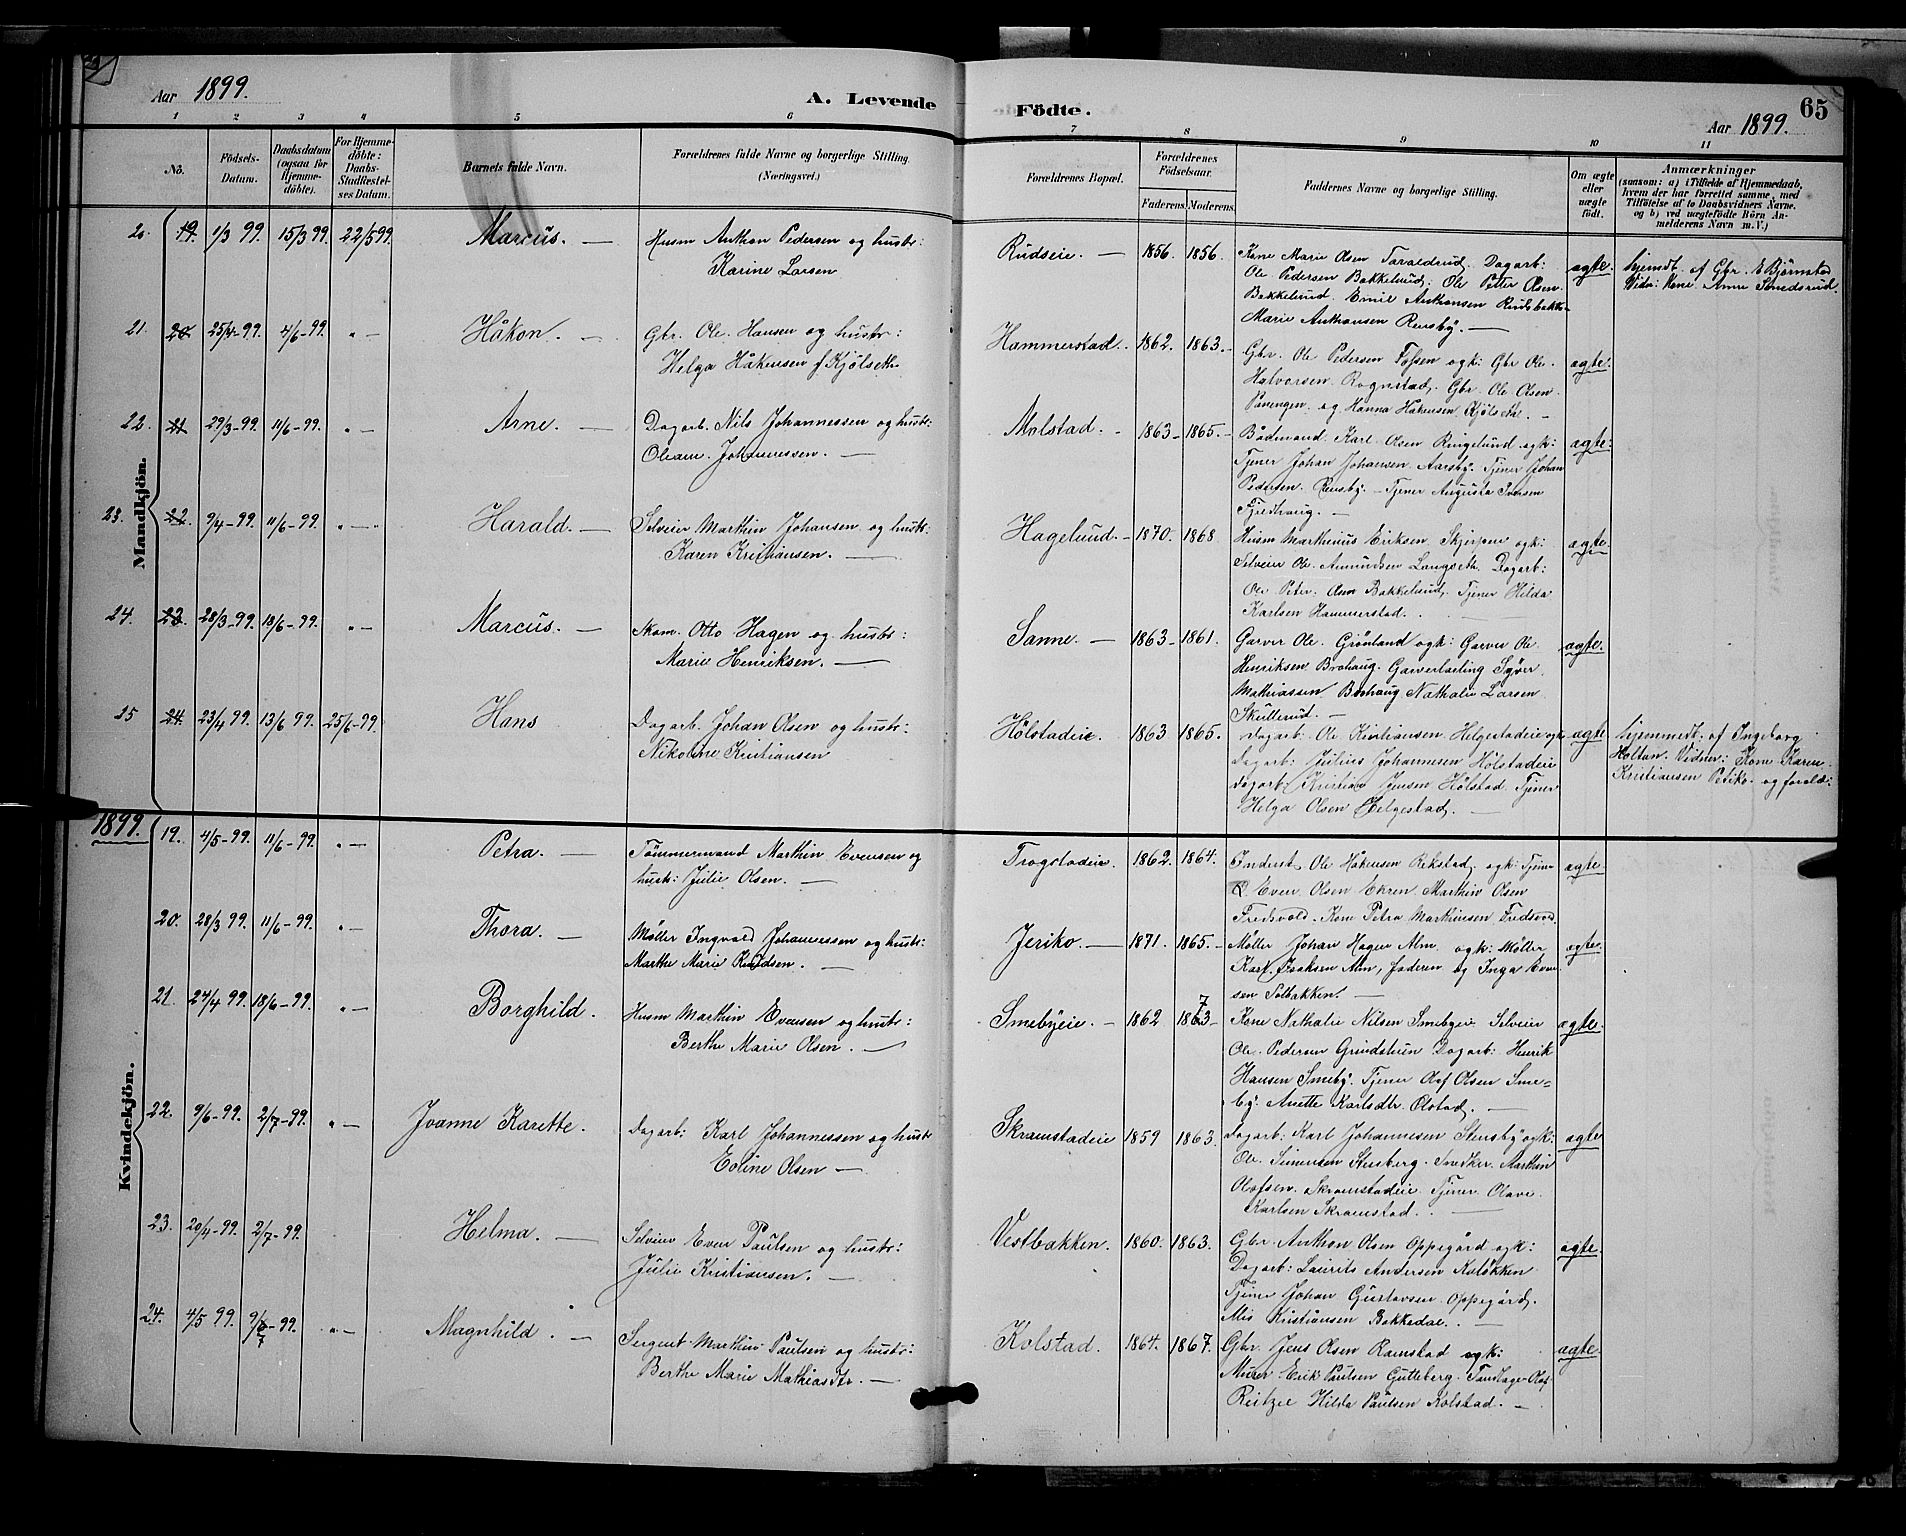 Aar 1899.
A. Levende
Födte.
65
Aar 1899.
1 2 3 4 5 6 7 8 9 10 11
No.
Födsels-Datum.
Daabsdatum (ogsaa for Hjemmedöbte).
For Hjemmedöbte: Daabs-Stadfæstelses Datum.
Barnets fulde Navn.
Forældrenes fulde Navne og borgerlige Stilling (Næringsvei.)
Forældrenes Bopæl.
Forældrenes Födselsaar.
Faderens. Moderens.
Faddernes Navne og borgerlige Stilling.
Om ægte eller uægte födt.
Anmærkninger
(saasom: a) i Tilfælde af Hjemmedaab, hvem der har forrettet samme, med Tilföielse af to Daabsvidners Navne. og b) ved uægtefödte Börn Anmelderens Navn m. V.)
Mandkjön.
20. 19. 1/3 99. 15/3 99. 22/5 99. Marcus. — Husm Anthon Pedersen og hustr:
Karine Larsen
Rudseie. — 1856. 1856. Kone Marie Olsen Taraldrud. Dagarb:
Ole Pedersen Bakkelund. Ole Petter Olsen
Bakkelund. Emil Anthonsen Rudsbakke
Marie Anthonsen Rensby. —
ægte. hjemdt. af Gbr. E Bjørnstad
Vidn: Kone Anne Smedsrud.
21. 20. 25/4-99. 4/6-99. " — Håkon. — Gbr. Ole Hansen og hustr:
Helga Håkensen f. Kjölseth
Hammerstad. 1862. 1863. Gbr. Ole Pedersen Fossen ogk: Gbr Ole
Halvorsen Rognstad. Gbr. Ole Olsen
og Hanna Håkensen Kjölseth. —
ægte.
22. 21. 29/3-99. 11/6-99. " — Arne. — Dagarb. Nils Johannessen og hustr:
Oleane Johannessen. —
Molstad. 1863. 1865. Bådmand Karl Olsen Ringelund ogk:
Tjener Johan Johansen Aarsby. Tjener Johan
Pedersen Rensby. — Tjener Augusta Iversen
Fjeldhaug. —
ægte.
23. 22. 9/4-99. 11/6-99. " — Harald. — Selveier Marthin Johansen og hustr:
Karen Kristiansen. —
Hagelund. 1870. 1868. Husm Marthinius Eriksen Skjerpen ogk:
Selveier Ole Amundsen Langseth. Dagarb:
Ole Peter Olsen Bakkelund. Tjener Hilda
Karlsen Hammerstad.
ægte.
24. 23. 28/3-99. 18/6-99. " — Marcus. — Skom. Otto Hagen og hustr:
Marie Henriksen. —
Sanne. — 1863. 1861. Garver Ole Grönland ogk: Garver Ole
Henriksen Brohaug. Garverlærling Syver
Mathiassen Brohaug Nathalie Larsen
Skullerud. —
ægte.
25 24. 23/4 99. 13/6 99. 25/6-99. Hans Dagarb. Johan Olsen og hustr:
Nikoline Kristiansen
Hölstadeie. 1863 1865. Dagarb: Ole Kristiansen Helgestadeie ogk
Dagarb: Julius Johannesen Hölstadeie
Dagarb: Kristian Jensen Hölstad. Tjener
Helga Olsen Helgestad. —
ægte hjemmedt: af Ingeborg
Holtan. Vidner: Kone Karen
Kristiansen Petiko. og foræld:
1899.
Kvindekjön.
19. 4/5-99. 11/6-99. " — Petra. — Tömmermand Marthin Evensen og
hustr: Julie Olsen. —
Trogstadeie. 1862. 1864. Inderst Ole Håkensen Rekstad, ogk: Tjener
Even Olsen Ekren Marthin Olsen
Fredsvold. Kone Petra Marthinsen Fredsvold.
ægte.
20. 28/3 99. 11/6-99. " — Thora. — Møller Ingvald Johannessen og hustr:
Marthe Marie Knudsen. —
Jeriko. — 1871. 1865. — Møller Johan Hagen Alm. ogk: Møller
Karl Isaksen Alm, faderen og Inga Even
sen Solbakken. —
ægte.
21. 24/4 99. 18/6-99. " — Borghild. Husm Marthin Evensen og hustr:
Berthe Marie Olsen. —
Smebyeie. — 1862 1863 7 — Kone Nathalie Nilsen Smebyeie. Selveier
Ole Pedersen Grindstuen Dagarb: Henrik
Hansen Smeby. Tjener Olaf Olsen Sme-
by. Anette Karlsdtr. Olstad. —
ægte.
22. 9/6-99. 2/7-99. " — Jvanne Karette. Dagarb: Karl Johannessen og hustr
Eoline Olsen —
Skramstadeie 1859 1863. Dagarb: Karl Johannesen Stensby ogk:
Ole Simensen Stusberg. Snedker Marthin
Olofsen. Skramstadeie. Tjener Olave
Karlsen Skramstad. —
ægte
23. 20/4-99. 2/7-99. Helma. — Selveier Even Paulsen og hustr:
Julie Kristiansen. —
Vestbakken. 1860. 1863. Gbr Anthon Olsen Oppegård ogk:
Dagarb: Laurits Andersen
Tjener Johan Gustavsen Oppegård.
Mis Kristiansen Bakkedal. —
ægte.
24. 4/5 99. 9/7-99. " — Magnhild. — Sergent Marthin Paulsen og hustr:
Berthe Marie Mathiasdtr. —
Kolstad. 1864. 1867. Gbr. Jens Olsen Ramstad ogk:
Murer Erik Paulsen Gutteberg. Tandlæge Olaf
Reitzel Hilda Paulsen Kolstad. —
ægte.